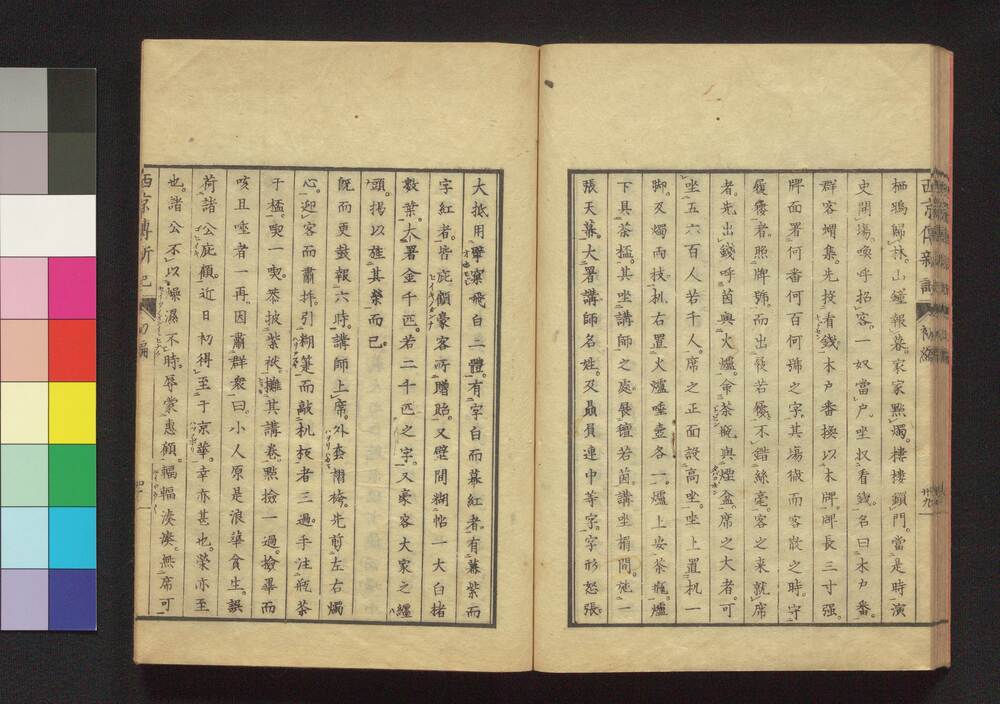 栖鴉歸林。山鐘報暮。家家點燭。樓樓鎖門。當是時演
史開場。喚呼招客。一奴當戶坐收看錢。名曰木戶番。
群客蝟集。先投看錢。木戶番換以木牌。牌長三寸强。
牌面署何番何百何號之字。其場徹而客散之時。守
履屨者。照牌號。而出屐若屨。不錯絲毫。客之来就席
者。先出錢。呼茵與火爐。命茶碗與煙盒。席之大者。可
坐五六百人若千人。席之正面設高坐。坐上置机一
脚。及燭兩枝。机右置火爐唾壺各一。爐上安茶瓶。爐
下具茶榼。其坐講師之處。展氊若茵。講坐楣間。施一
張天幕。大署講師名姓。及贔屓連中等字。字形怒張
大抵用擘窠飛白二體。有字白而幕紅者。有幕紫而
字紅者。皆庇顧豪客所贈貽。又壁間糊帖一大白楮
數葉。大署金千匹。若二千匹之字。又豪客大家之纏
頭。揚以旌其榮而已。
既而更鼓報六時。講師上席。外套摺袴。先剪左右燭
心。迎客而肅拜。引糊箑而敲机板者三過。手注瓶茶
于榼。喫一喫。恭披紫袱。攤其講卷。點撿一過。撿畢而
咳且唾者一再。因肅群衆曰。小人原是浪華貧生。誤
荷諸公庇顧。近日初得至于京華。幸亦甚也。榮亦至
也。諸公不以燥濕不時。辱蒙惠顧。輻輻湊湊。無席可